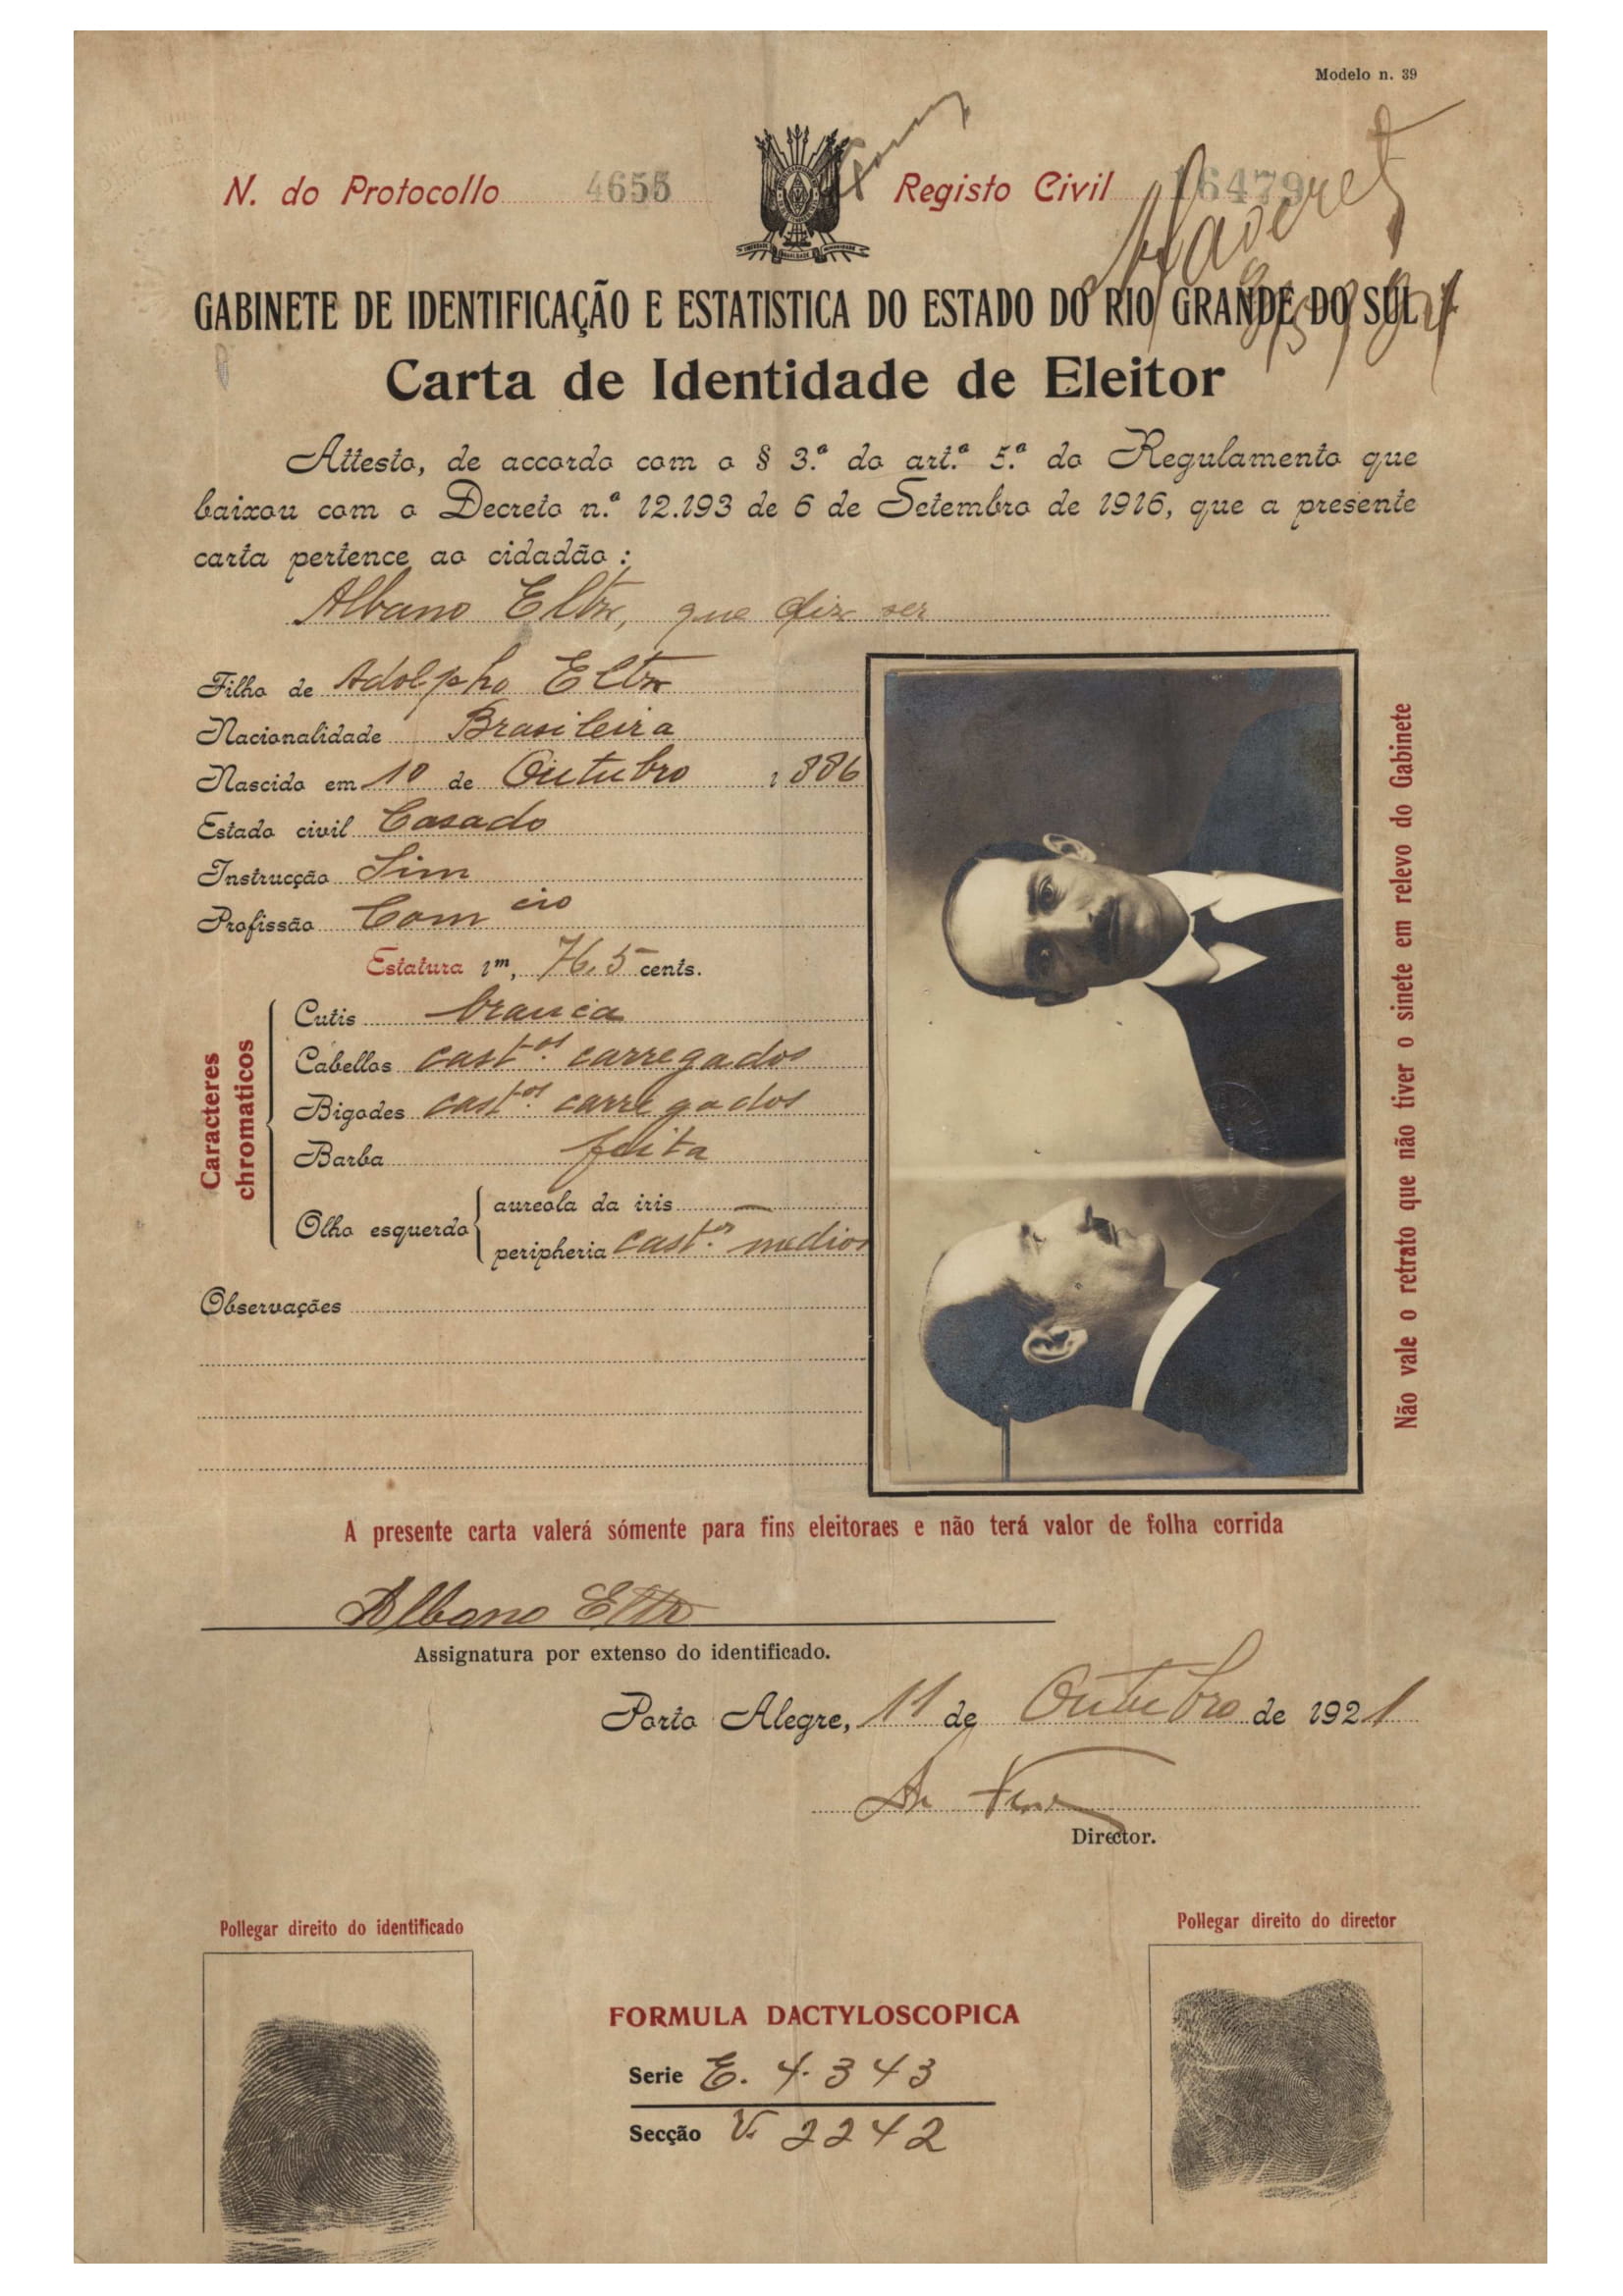 Modelo n. 39
N. do Protocollo 4655
Registo Civil 16479
GABINETE DE IDENTIFICAÇÃO E ESTATISTICA DO ESTADO DO RIO GRANDE DO SUL
Carta de Identidade de Eleitor
Attesto, de accordo com o § 3.º do art.º 5.º do Regulamento que
baixou com o Decreto n.º 12.193 de 6 de Setembro de 1916, que a presente
carta pertence ao cidadão:
Albano Eltz, que diz ser
Filho de Adolpho Eltz
Nacionalidade Brasileira
Nascido em 10 de Outubro 1886
Estado civil Casado
Instrucção Sim
Profissão Com cio
Estatura 1m, 76,5 cents.
Caracteres
chromaticos
Cutis branca
Cabellos cast.os carregados
Bigodes cast.os carregados
Barba feita
Olho esquerdo
aureola da iris —
peripheria cast.os medios
Observações
Não vale o retrato que não tiver o sinete em relevo do Gabinete
A presente carta valerá sómente para fins eleitoraes e não terá valor de folha corrida
Albano Eltz
Assignatura por extenso do identificado.
Porto Alegre, 11 de Outubro de 1921
Director.
Pollegar direito do identificado
Pollegar direito do director
FORMULA DACTYLOSCOPICA
Serie E. 4.343
Secção V. 2242